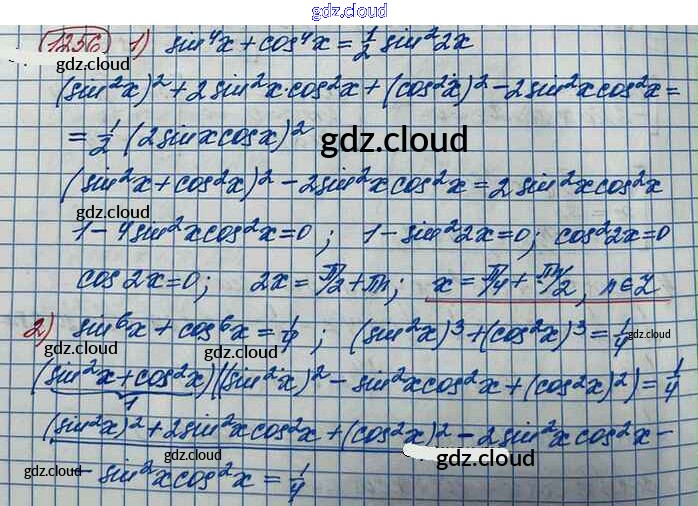 gdz.cloud
1256 1) sin⁴x + cos⁴x = 1/2 sin²2x
gdz.cloud
(sin²x)² + 2sin²x·cos²x + (cos²x)² - 2sin²xcos²x =
gdz.cloud
= 1/2 (2sinxcosx)²
gdz.cloud
(sin²x + cos²x)² - 2sin²xcos²x = 2sin²xcos²x
gdz.cloud
1 - 4sin²xcos²x = 0; 1 - sin²2x = 0; cos²2x = 0
gdz.cloud
cos2x = 0; 2x = π/2 + πn; x = π/4 + πn/2, n∈Z
2) sin⁶x + cos⁶x = 1/4; (sin²x)³ + (cos²x)³ = 1/4
gdz.cloud
gdz.cloud
(sin²x + cos²x)((sin²x)² - sin²xcos²x + (cos²x)²) = 1/4
1
(sin²x)² + 2sin²xcos²x + (cos²x)² - 2sin²xcos²x -
gdz.cloud
gdz.cloud
- sin²xcos²x = 1/4
gdz.cloud